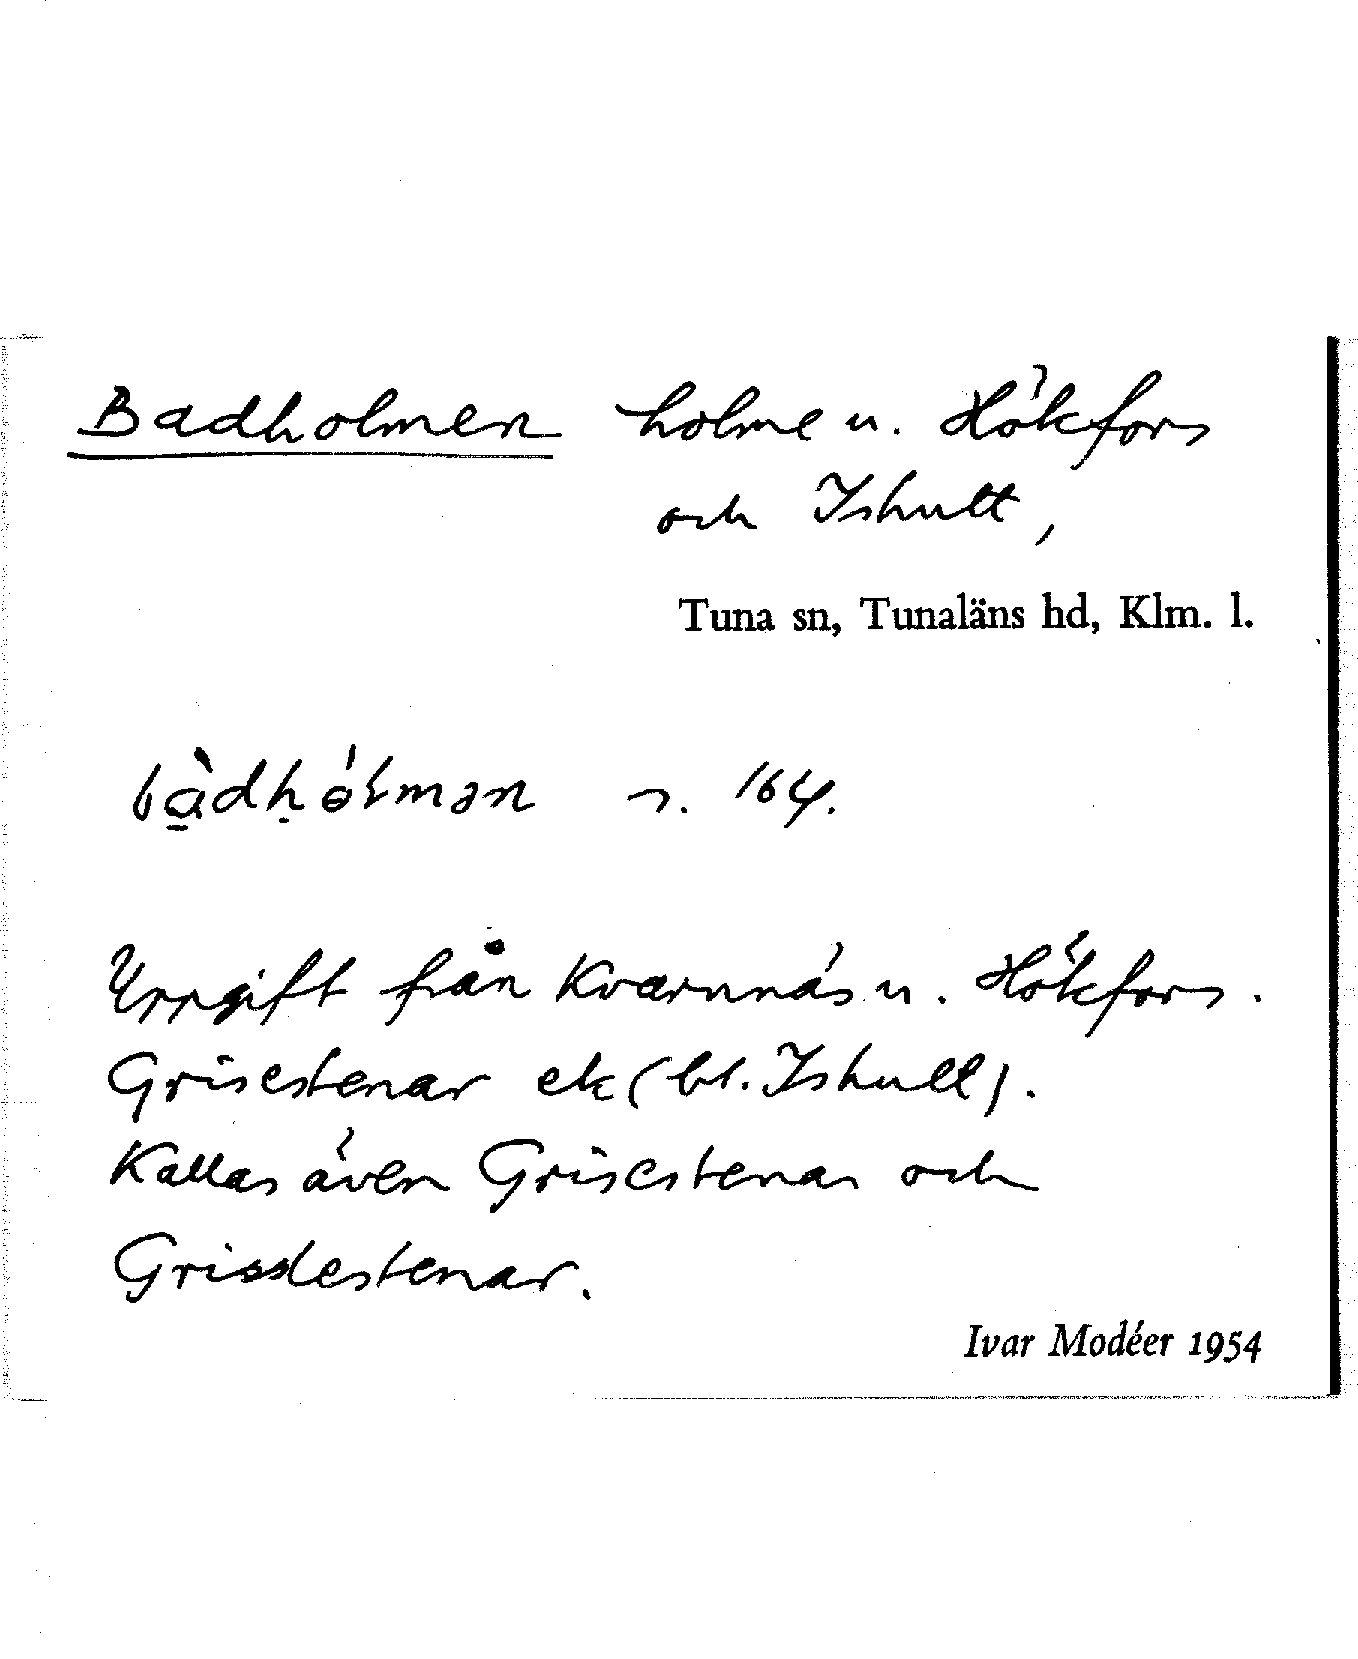 Badholmen holme u. Hökfors
och Ishult,
Tuna sn, Tunaläns hd, Klm. l.
bà̱dḥɵ́lmən s. 164.
Uppgift från Kvarnnäs u. Hökfors.
Grisestenar ek (bl. Ishult).
Kallas även Grisestenar och
Grisslestenar.
Ivar Modéer 1954